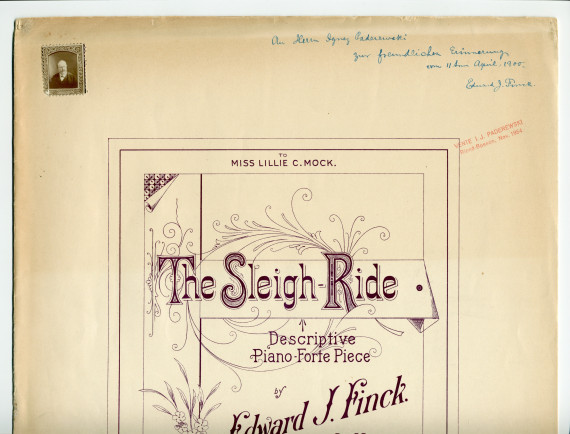 An Herrn Ignaz Paderewski
zur freundlichen Erinnerung
vom 11ten April. 1900.
Edward J. Finck
VENTE I. J. PADEREWSKI
TO
MISS LILLIE C. MOCK.
The Sleigh-Ride
Descriptive
Piano-Forte Piece
by
Edward J. Finck.